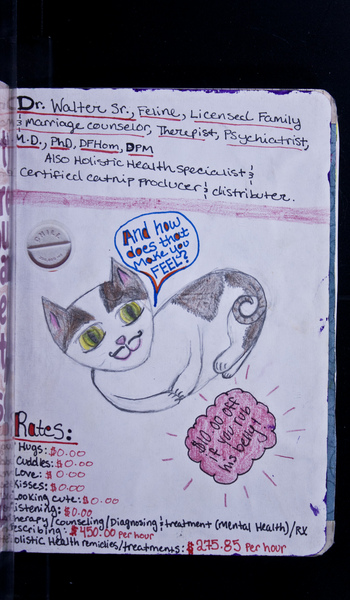 Dr. Walter Sr., Feline, Licensed Family
& marriage counselor, Therapist, Psychiatrist,
M.D., PhD, DFHom, DPM
Also Holistic Health specialist &
Certified catnip producer & distributer.
And how
does that
make you
FEEL?
$10.00 off
if you rub
his belly!
Rates:
Hugs: $0.00
Cuddles: $0.00
Love: $0.00
Kisses: $0.00
Looking cute: $0.00
istening: $0.00
herapy/counseling/Diagnosing & treatment (Mental Health)/RX
escribing: $450.00 per hour
olistic Health remidies/treatments: $275.85 per hour